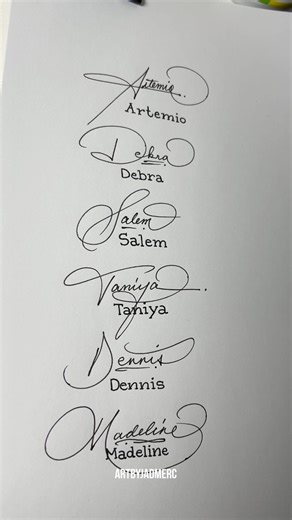 Artemio.
Artemio
Debra
Debra
Salem
Salem
Taniya.
Taniya
Dennis
Dennis
Madeline
Madeline
ARTBYJADMERC